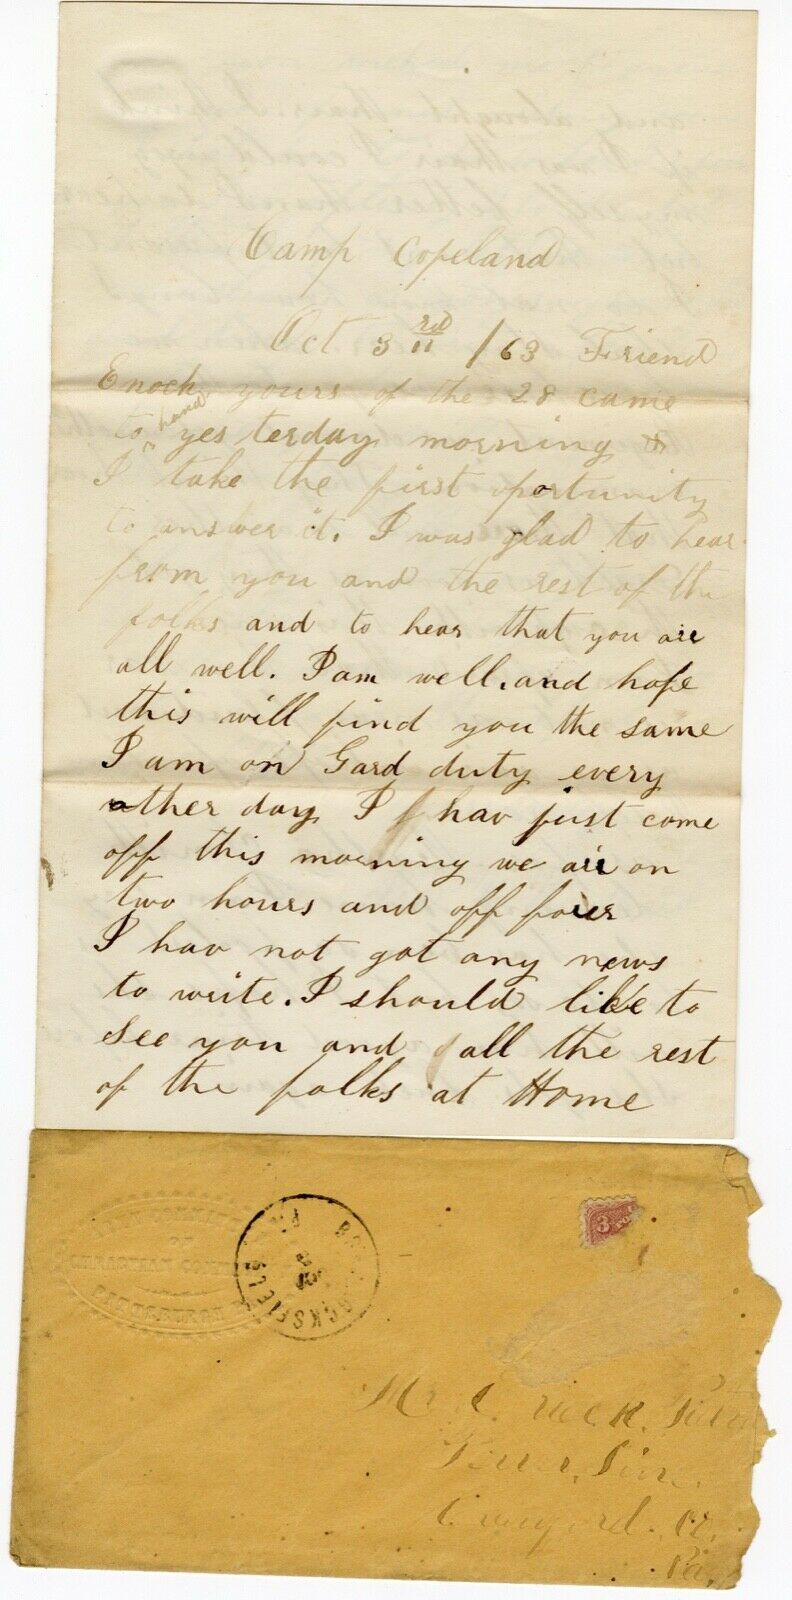 Camp Copeland
Oct 3rd /63 Friend
Enoch yours of the 28 came
to hand yes terday morning &
I take the first oportunity
to answer it. I was glad to hear
from you and the rest of the
folks and to hear that you are
all well. I am well. and hope
this will find you the same
I am on Gard duty every
other day I hav just come
off this morning we are on
two hours and off fouer
I hav not got any news
to write. I should like to
see you and all the rest
of the folks at Home
CHRISTIAN
3
Mr
Co.
Pa.